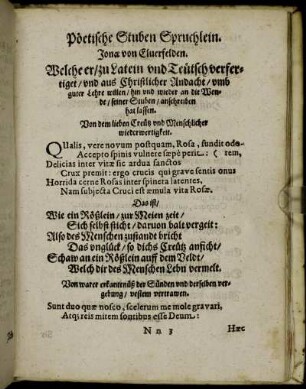 Pöetische Stuben Sprüchlein.
Jonæ von Eluerfelden.
Welche er/ zu Latein vnd Teütsch verfer-
tiget/ vnd aus Christlicher Andacht/ vmb
guter Lehre willen/ hin vnd wieder an die Wen-
de/ seiner Stuben/ anschreiben
hat lassen.
Von dem lieben Creütz vnd Menschlicher
wiederwertigkeit.
QUalis, vere novum postquam, Rosa, fundit odo-
Accepto spinis vulnere sæpè perit: (rem,
Delicias inter vitæ sic ardua sanctos
Crux premit: ergo crucis qui grave sentis onus
Horrida cerne Rosas inter spineta latentes,
Nam subjecta Cruci est æmula vita Rosæ.
Das ist/
Wie ein Rößlein/ zur Meien zeit/
Sich selbst sticht/ daruon balt vergeit:
Also des Menschen zustandt bricht
Das vnglück/ so dichs Creütz anficht/
Schaw an ein Rößlein auff dem Veldt/
Welch dir des Menschen Lebn vermelt.
Von warer erkantnüß der Sünden vnd derselben ver-
gebung/ vestem vertrawen.
Sunt duo quæ nosco, scelerum me mole gravari,
Atq; reis mitem sontibus esse Deum:
N n 3
Hæc